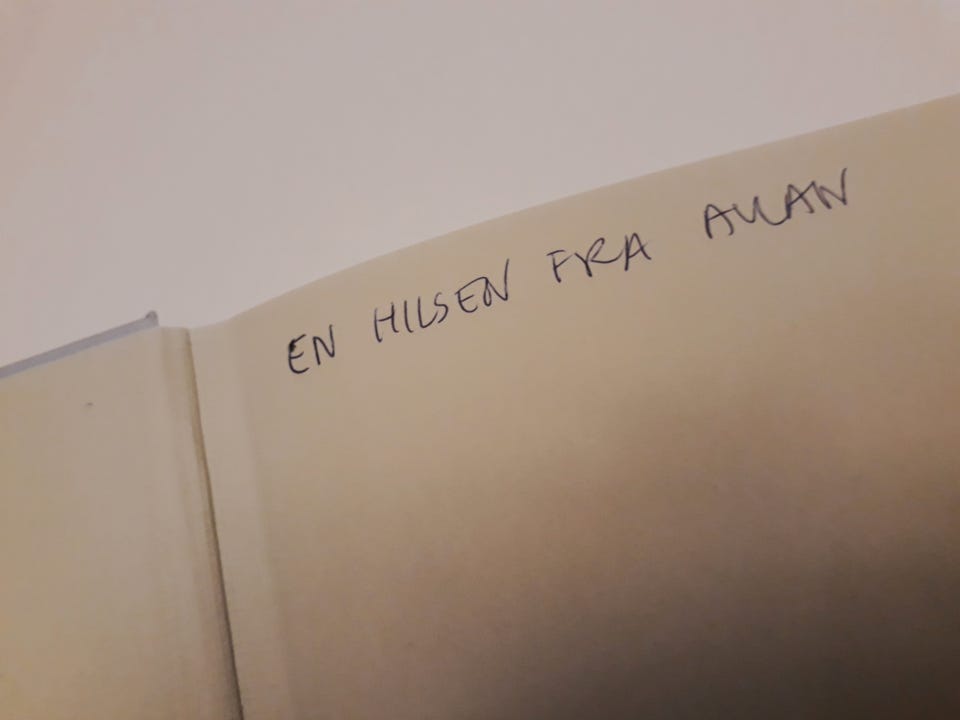 EN HILSEN FRA ALLAN